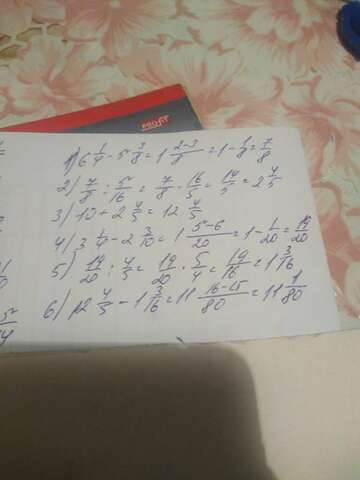 PROFIT
1) 6 1/4 - 5 3/8 = 1 2-3/8 = 1 - 1/8 = 7/8
2) 7/8 : 5/16 = 7/8 · 16/5 = 14/5 = 2 4/5
3) 10 + 2 4/5 = 12 4/5
4) 3 1/4 - 2 3/10 = 1 5-6/20 = 1 - 1/20 = 19/20
5) 19/20 : 4/5 = 19/20 · 5/4 = 19/16 = 1 3/16
6) 12 4/5 - 1 3/16 = 11 16-15/80 = 11 1/80